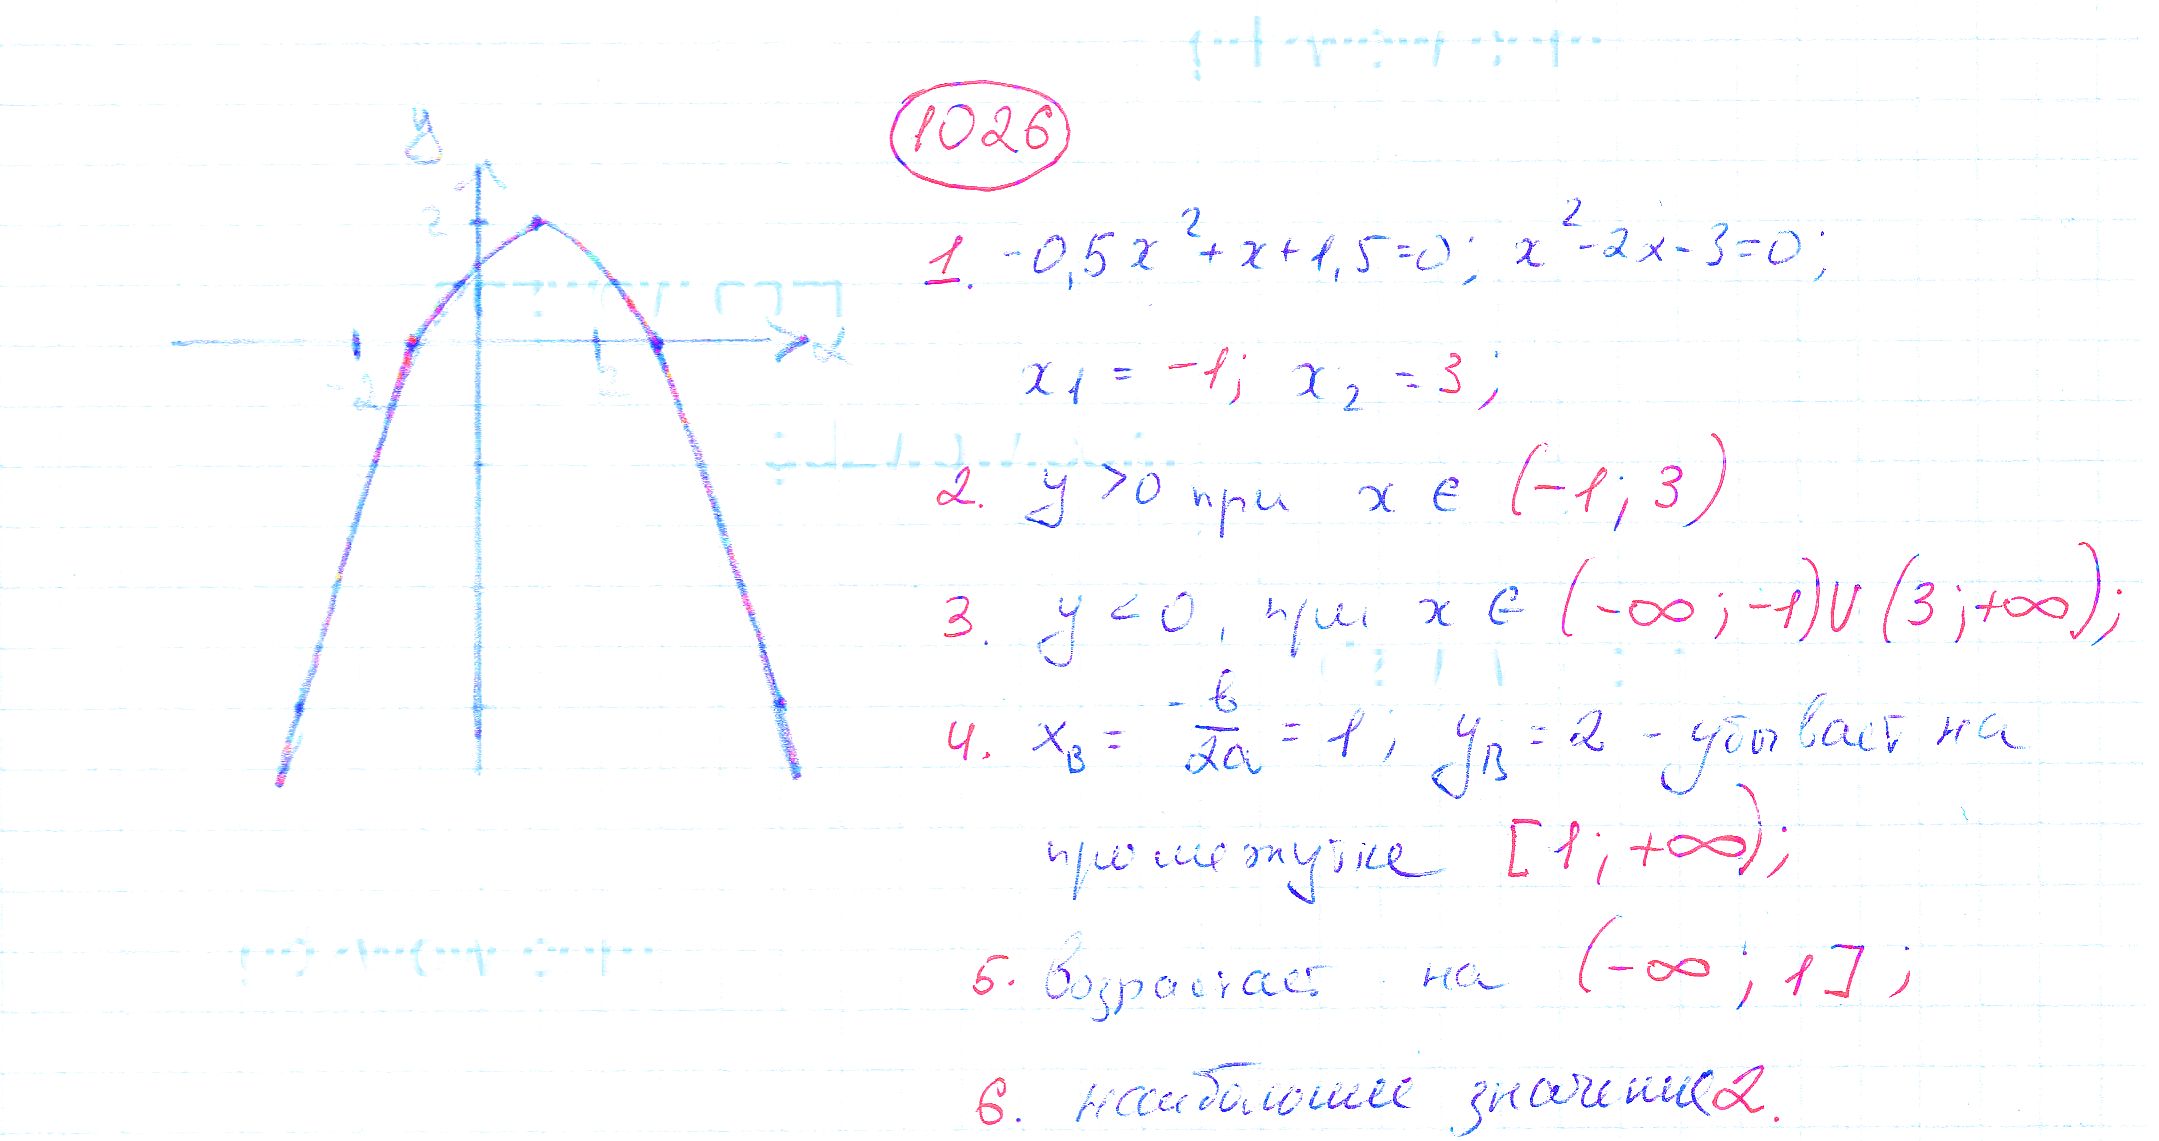 1026
y
2
-2
2
x
1. -0,5x²+x+1,5=0; x²-2x-3=0;
x₁ = -1; x₂ = 3;
2. y >0 при x ∈ (-1; 3)
3. y < 0, при x ∈ (-∞; -1)∪(3;+∞);
4. x_B = -b/2a = 1; y_B = 2 - убывает на
промежутке [1; +∞);
5. возрастает на (-∞; 1];
6. наибольшее значение 2.